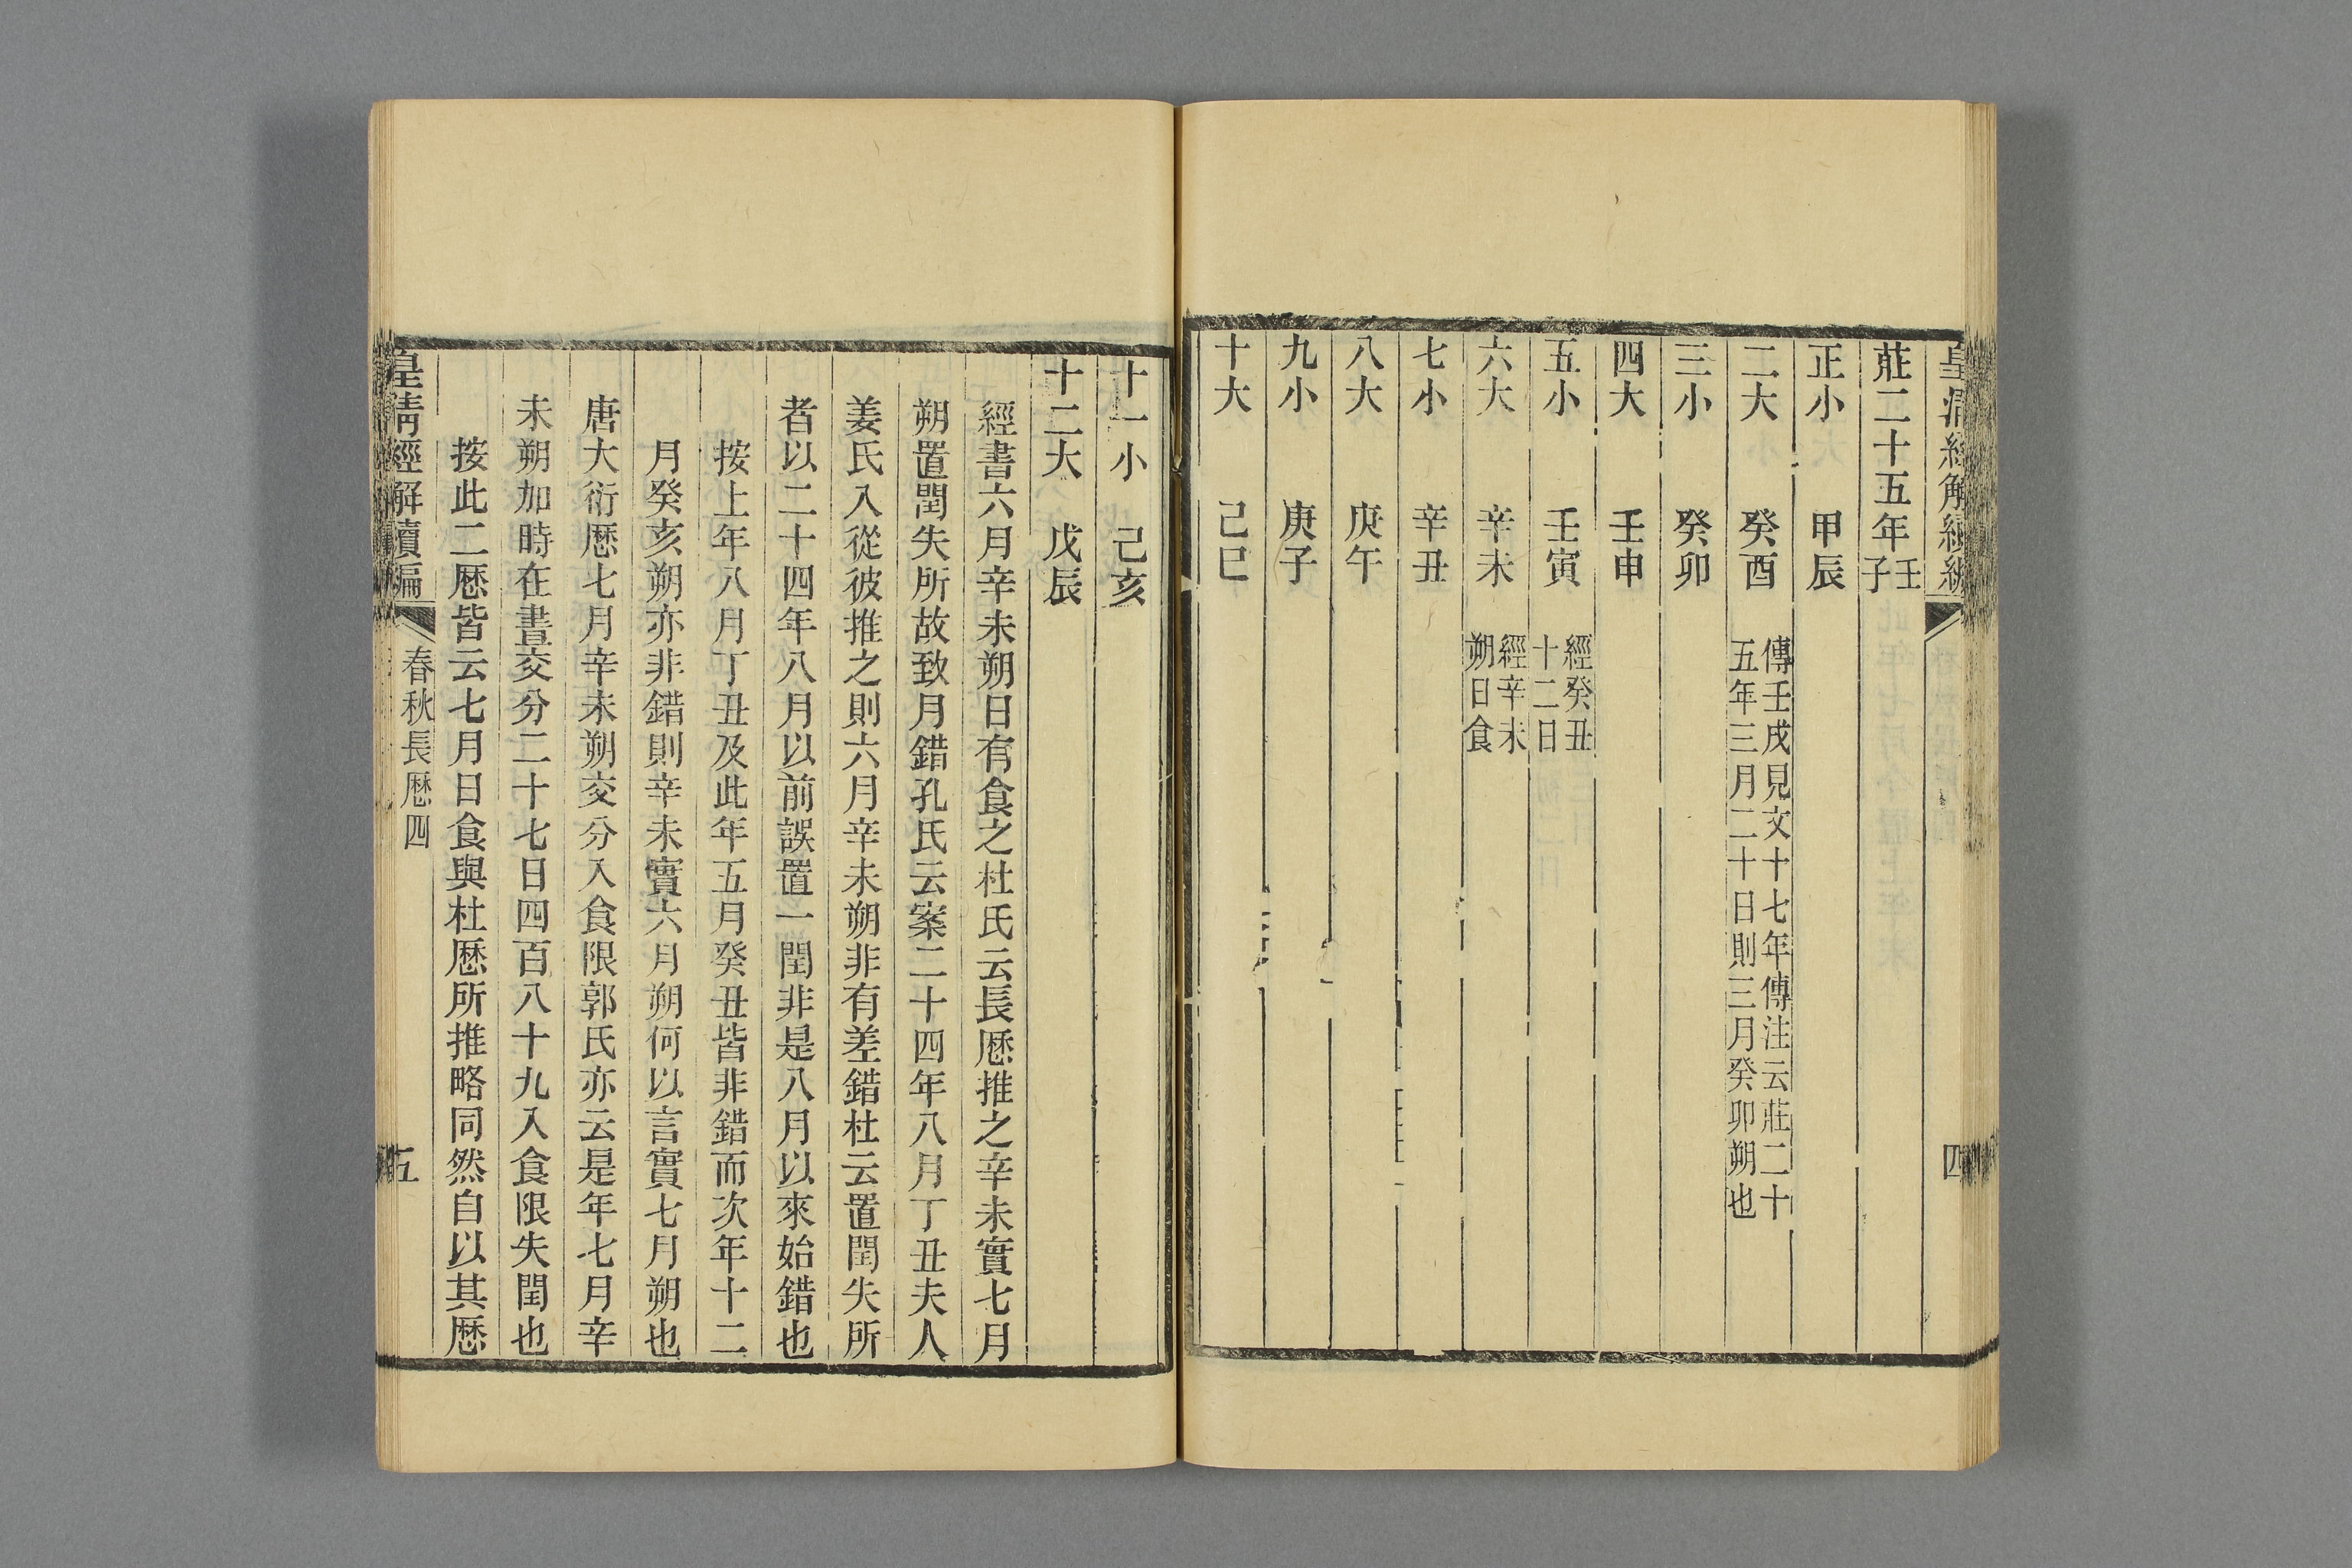 皇清經解續編
四
莊二十五年壬子
正小 甲辰
二大 癸酉 傳壬戌見文十七年傳注云莊二十
五年三月二十日則三月癸卯朔也
三小 癸卯
四大 壬申
五小 壬寅 經癸丑
十二日
六大 辛未 經辛未
朔日食
七小 辛丑
八大 庚午
九小 庚子
十大 己巳
十一小 己亥
十二大 戊辰
經書六月辛未朔日有食之杜氏云長厯推之辛未實七月
朔置閏失所故致月錯孔氏云案二十四年八月丁丑夫人
姜氏入從彼推之則六月辛未朔非有差錯杜云置閏失所
者以二十四年八月以前誤置一閏非是八月以來始錯也
按上年八月丁丑及此年五月癸丑皆非錯而次年十二
月癸亥朔亦非錯則辛未實六月朔何以言實七月朔也
唐大衍厯七月辛未朔交分入食限郭氏亦云是年七月辛
未朔加時在晝交分二十七日四百八十九入食限失閏也
按此二厯皆云七月日食與杜厯所推略同然自以其厯
皇清經解續編
春秋長厯四
五